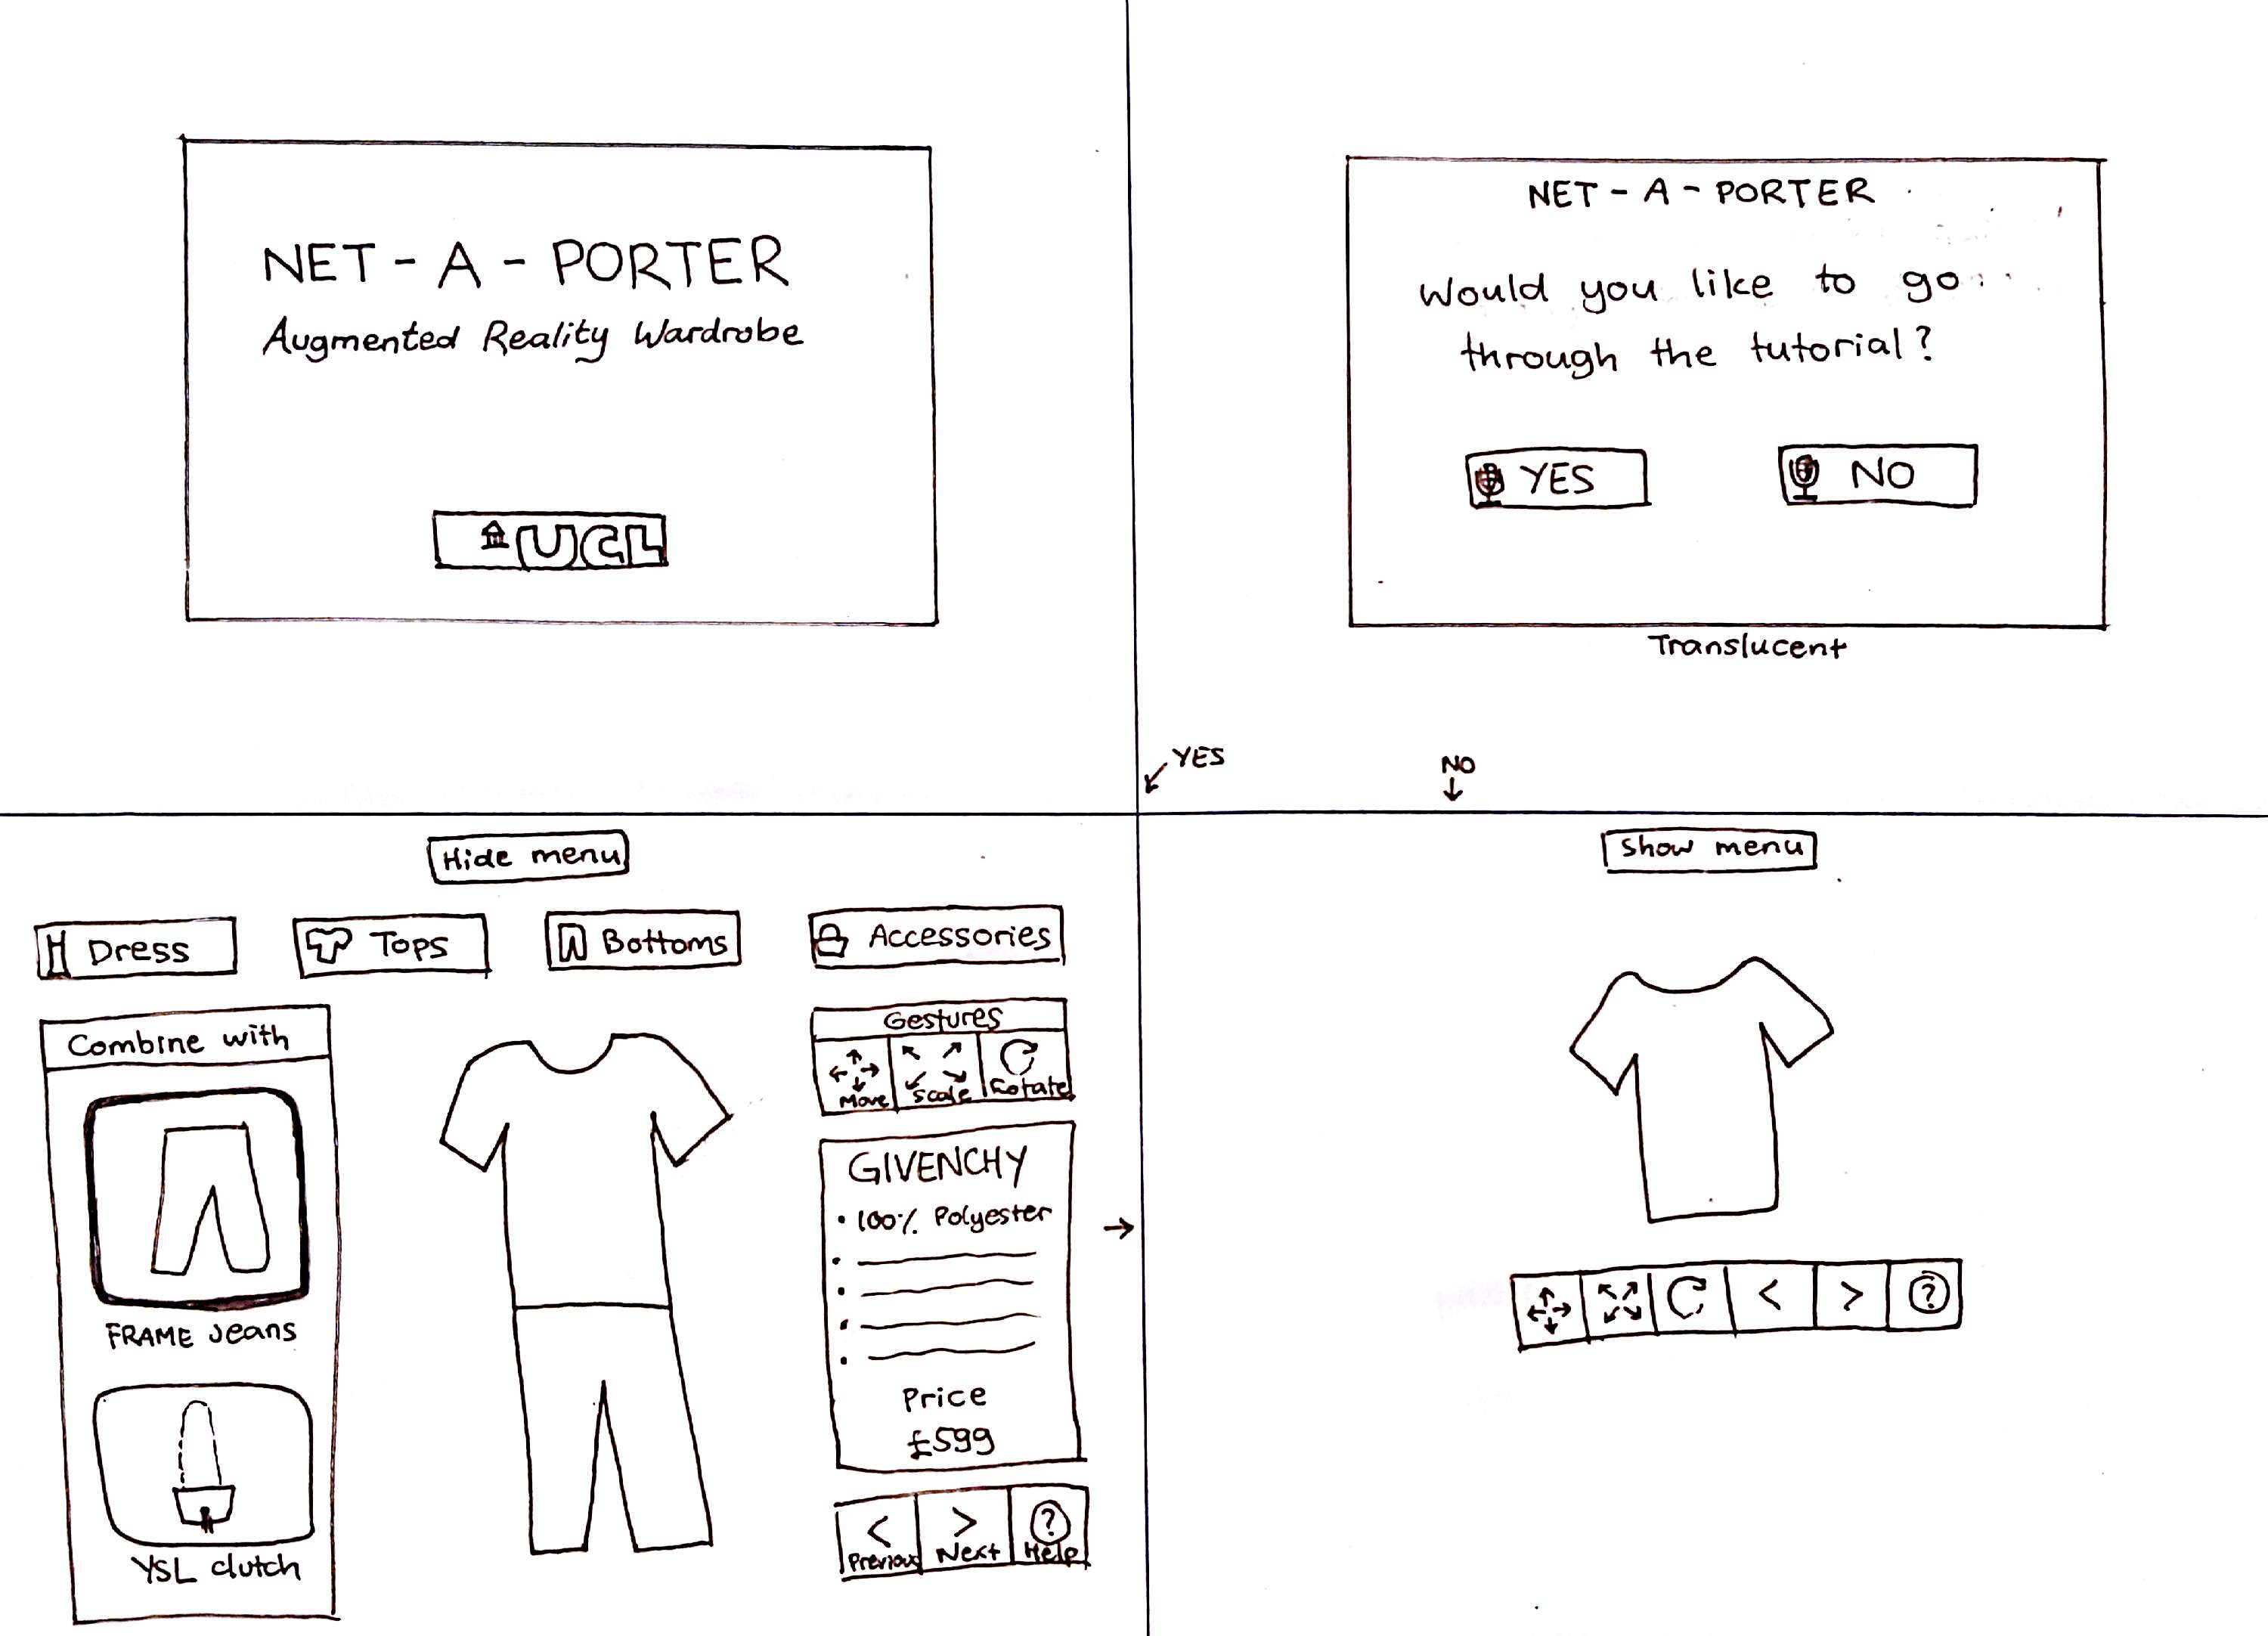 NET - A - PORTER
Augmented Reality Wardrobe
UCL
NET - A - PORTER
Would you like to go
through the tutorial?
YES
NO
Translucent
YES
NO
Hide menu
Dress
Tops
Bottoms
Accessories
Combine with
FRAME Jeans
YSL clutch
Gestures
Move
Scale
Rotate
GIVENCHY
• 100% Polyester
Price
£599
<
Previous
>
Next
?
Help
Show menu
<
>
?